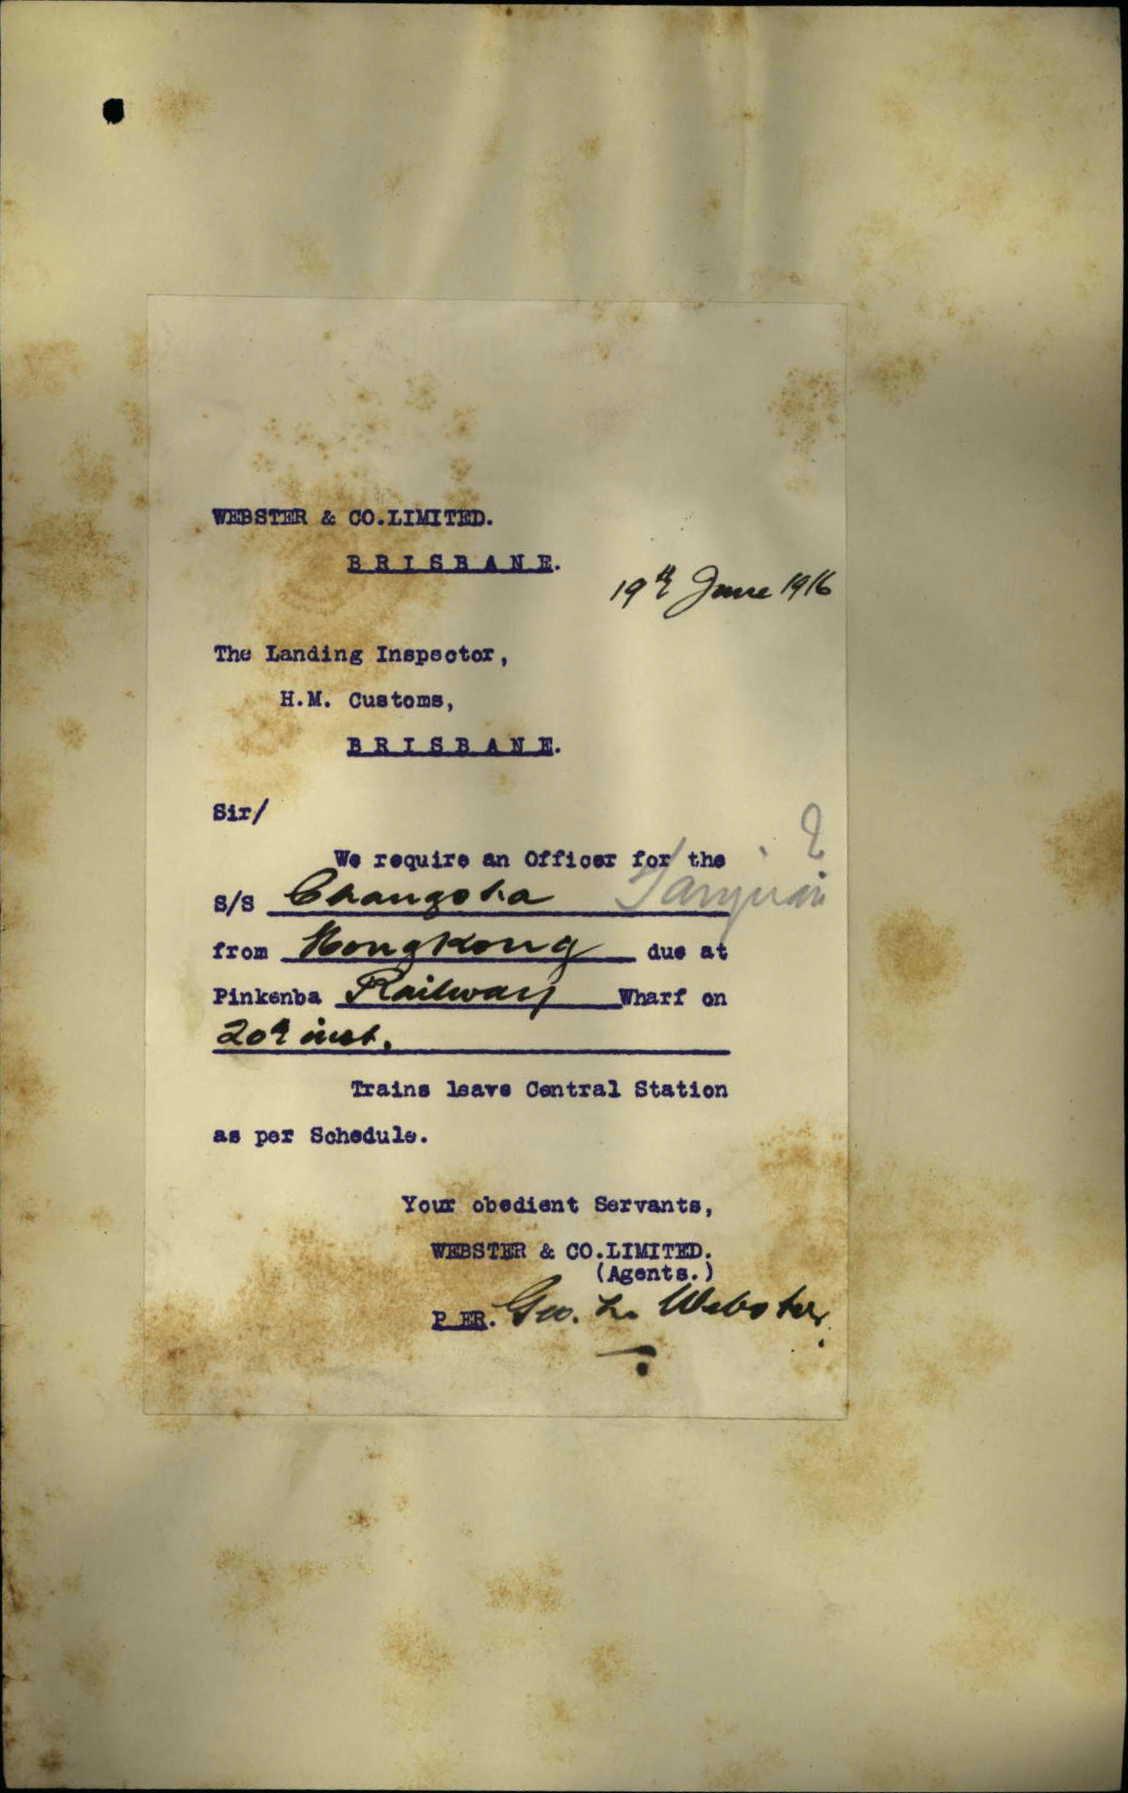 WEBSTER & CO.LIMITED.
BRISBANE.
19th June 1916
The Landing Inspector,
H.M. Customs,
BRISBANE.
Sir/
?
We require an Officer for the
S/S Changsha Taiyuan
from Hongkong due at
Pinkenba Railway Wharf on
20th inst.
Trains leave Central Station
as per Schedule.
Your obedient Servants,
WEBSTER & CO.LIMITED.
(Agents.)
PER. Geo. L. Webster.